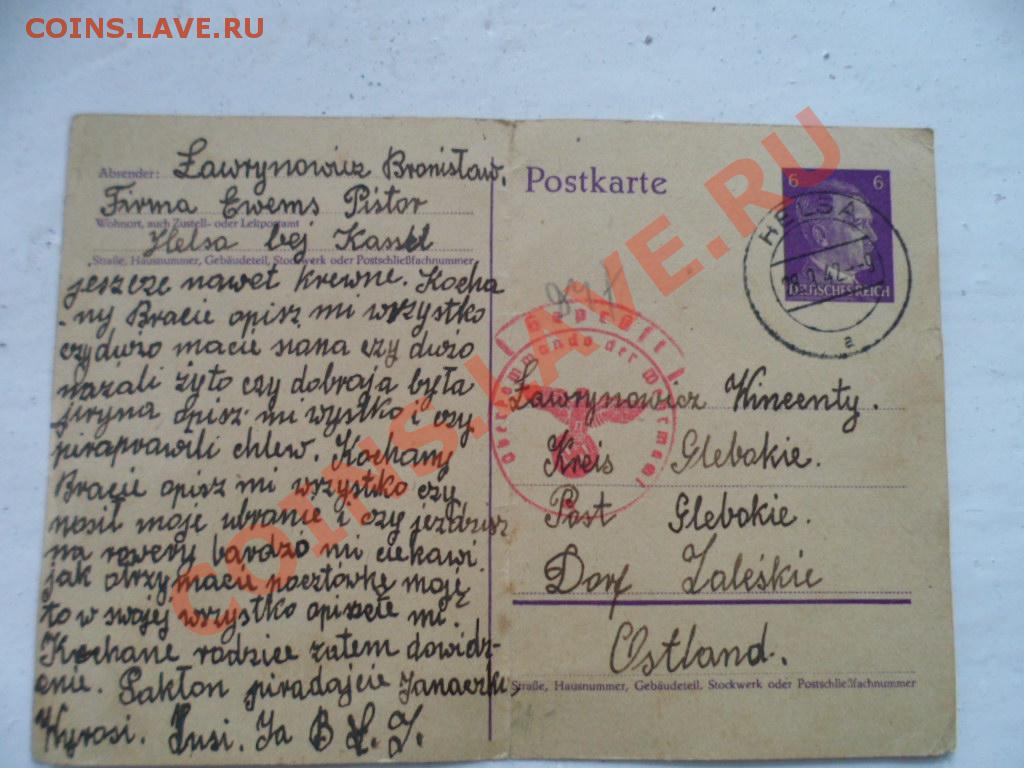 COINS.LAVE.RU
Absender: Ławrynowicz Bronisław.
Firma Ewems Pistor
Wohnort, auch Zustell- oder Leitpostamt
Helsa bej Kassel
Straße, Hausnummer, Gebäudeteil, Stockwerk oder Postschließfachnummer
jeszcze nawet krewne. Kocha
ny Bracie opisz mi wszystko
czy duzo macie siana czy duzo
nazali żyto czy dobraja była
jiryna opisz mi wystko i czy
pirapravili chlew. Kochany
Bracie opisz mi wszystko czy
nosił moje ubranie i czy jezdzisz
na rowery bardzo mi ciekawi.
jak otrzymacie pocztówkę moję
to w swojej wszystko opiszcie mi.
Kochane rodzice zatem dowidz-
enie. Pakłon piradajcie Janaczku
Wyrosi. Lusi. Ja B Ł. J.
Postkarte
6 6
DEUTSCHES REICH
HELSA
a
Geprüft
Oberkommando der Wehrmacht
Ławrynowicz Wincenty.
Kreis Glebakie.
Post Glebokie.
Dorf Zaleśkie
Ostland.
Straße, Hausnummer, Gebäudeteil, Stockwerk oder Postschließfachnummer
COINS.LAVE.RU